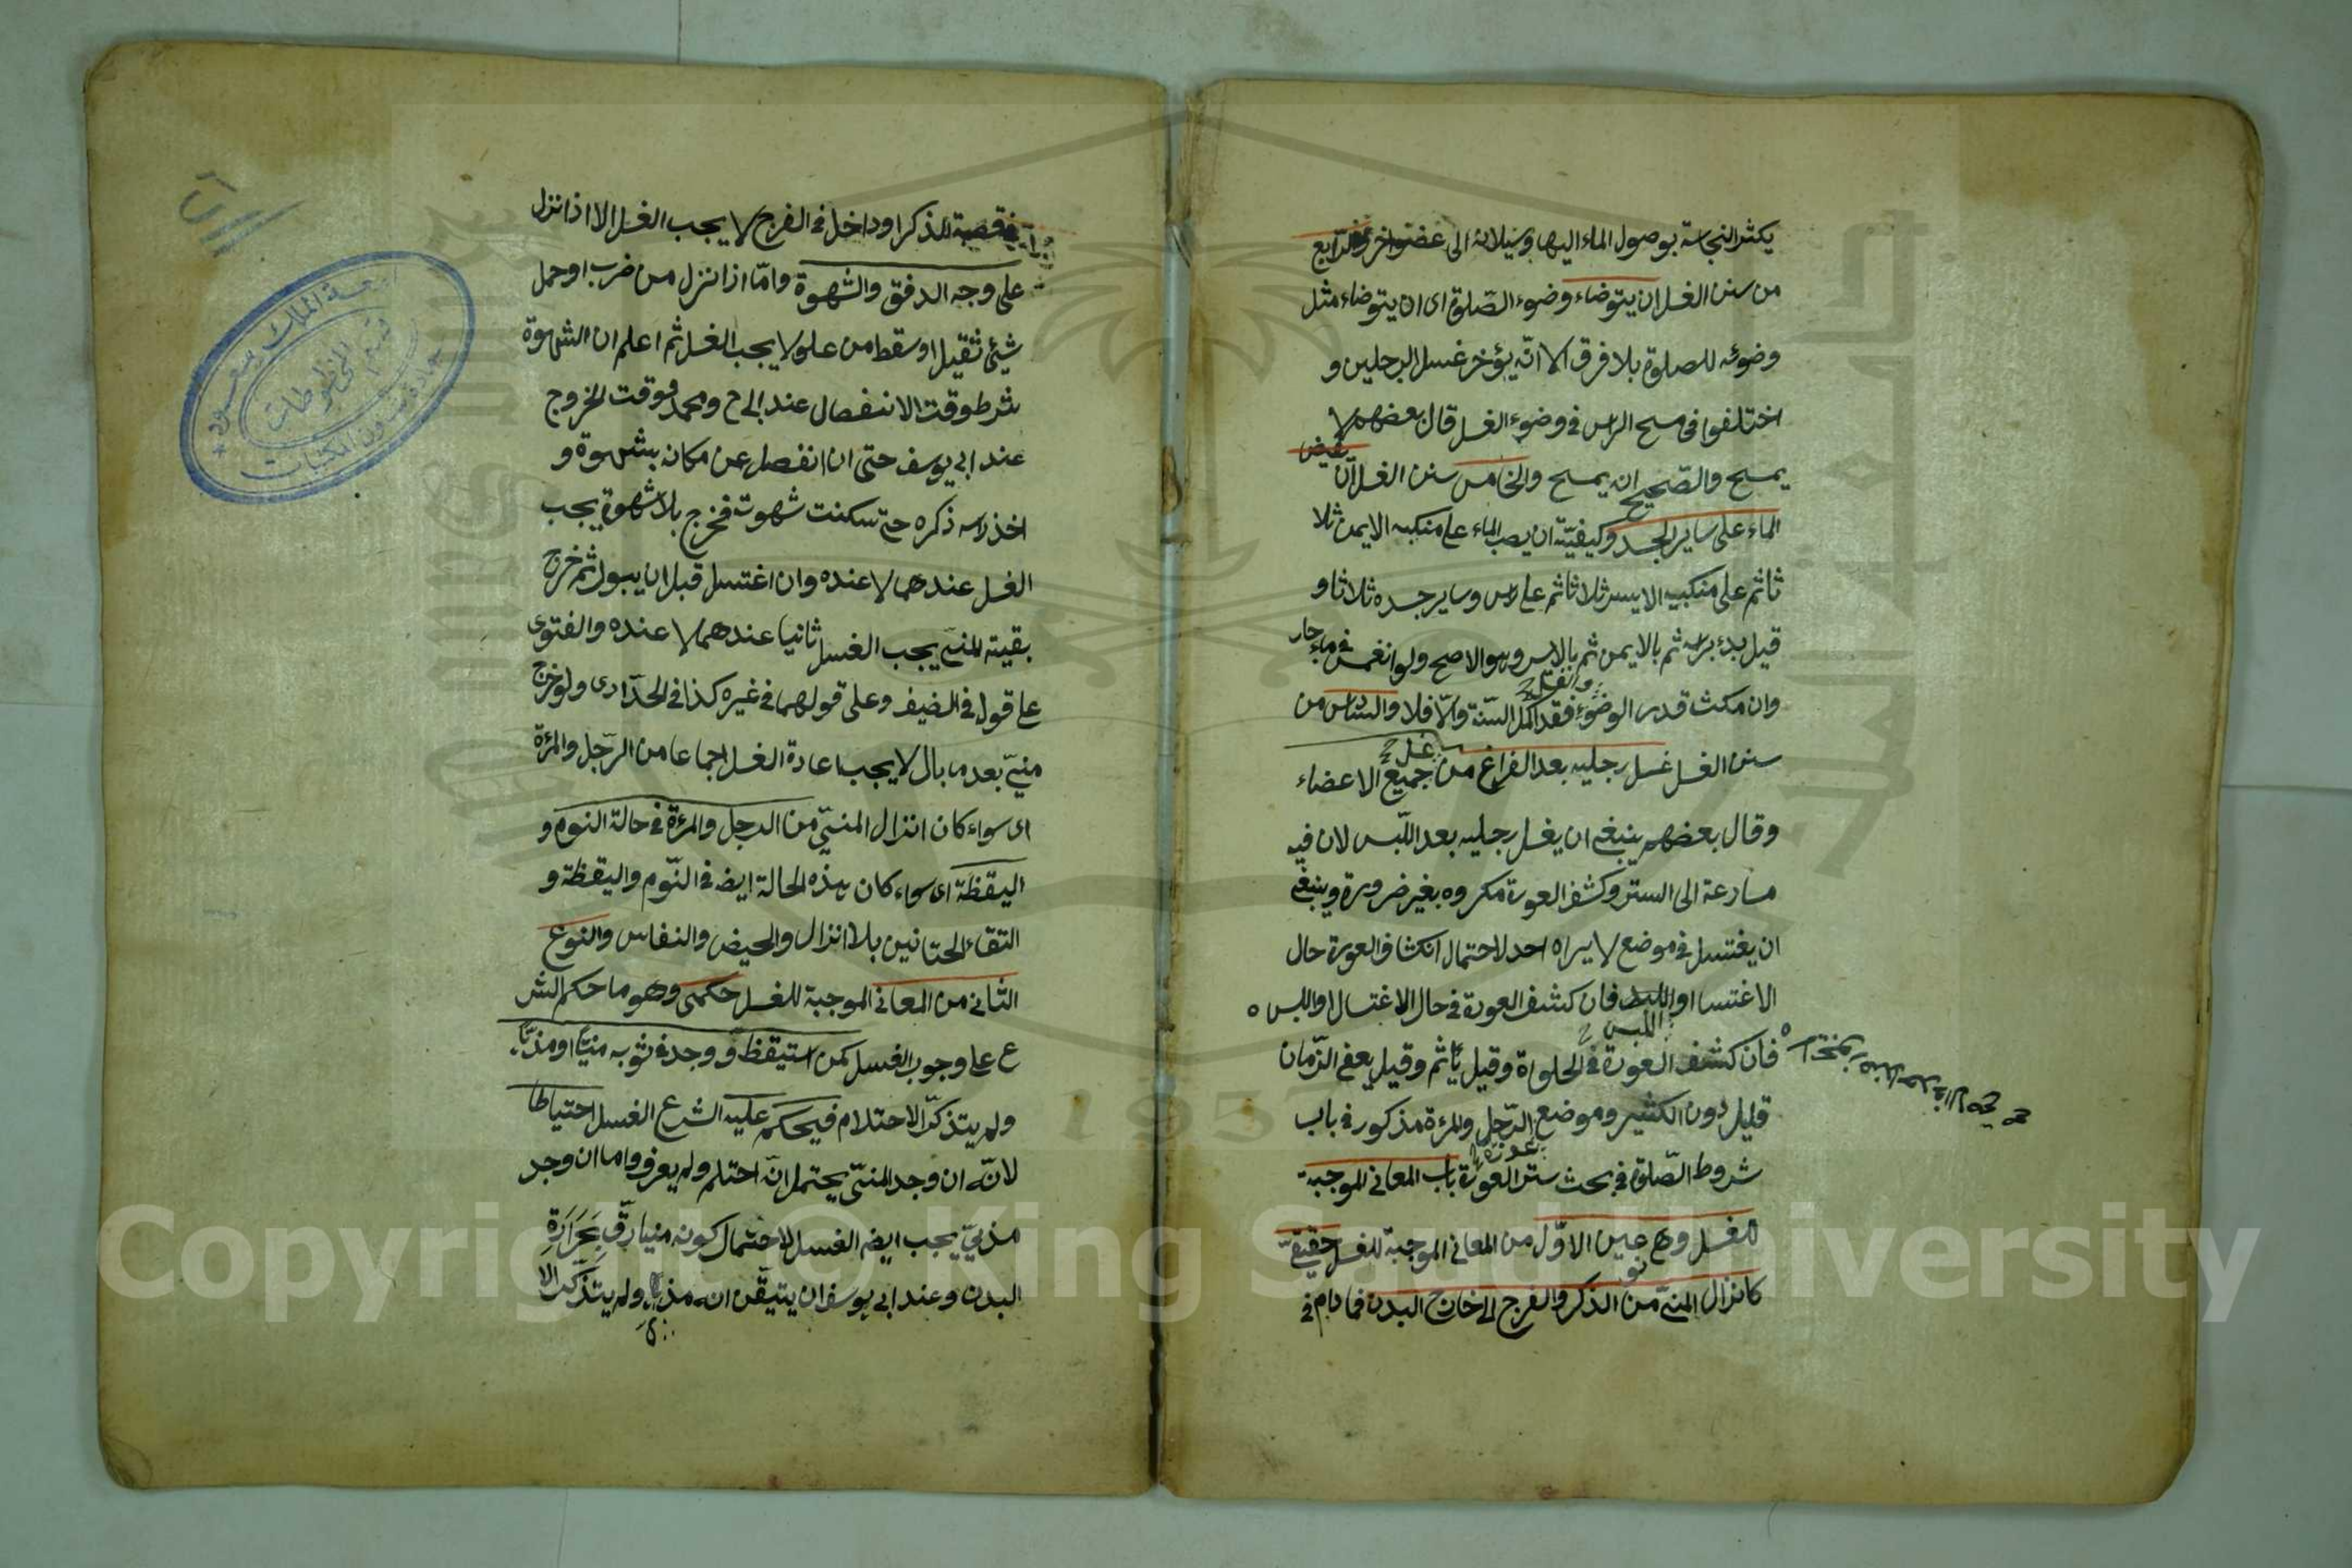 يكثر النجاسة بوصول الماء اليها وسيلانه الى عضو اخر والرابع
من سنن الغسل ان يتوضاء وضوء الصّلوة اى ان يتوضاء مثل
وضوئه للصلوة بلا فرق الا انّه يؤخر غسل الرجلين و
اختلفوا فى مسح الراس فى وضوء الغسل قال بعضهم لا
يمسح والصّحيح ان يمسح والخامس سنن الغسل ان يفيض
الماء على ساير الجسد وكيفيّته ان يصب الماء على منكبه الايمن ثلا
ثا ثم على منكبيه الايسر ثلاثا ثم على راس وساير جسده ثلاثا و
قيل بدء براسه ثم بالايمن ثم بالايسر وهو الاصح ولو انغمس فى ماء جار
وان مكث قدر الوضوء والغسل فقد اكمل السّنة والّا فلا والسّادس من
سنن الغسل غسل رجليه بعد الفراغ من غسل جميع الاعضاء
وقال بعضهم ينبغى ان يغسل رجليه بعد اللّبس لان فيه
مسارعة الى الستر وكشف العورة مكروه بغير ضرورة وينبغى
ان يغتسل فى موضع لا يراه احد لاحتمال انكشاف العورة حال
الاغتسا او اللبس فان كشف العورة فى حال الاغتسال او اللبس ه
فان كشف العورة فى الخلواة وقيل ياثم وقيل يعفى الزّمان
قليل دون الكثير وموضع عورة الرّجل والمرءة مذكور فى باب
شروط الصّلوة فى بحث ستر العورة باب المعانى الموجبة
للغسل وهى نوعين الاوّل من المعانى الموجبة للغسل حقيقىّ
كانزال المنىّ من الذكر والفرج الى خارج البدن فما دام فى
فى قصبة الذكر او داخل فى الفرج لا يجب الغسل الا اذا نزل
على وجه الدفق والشهوة وامّا اذا نزل من ضرب او حمل
شيئ ثقيل او سقط من علو لا يجب الغسل ثم اعلم ان الشهوة
شرط وقت الانفصال عند ابى ح ومحمد ووقت الخروج
عند ابى يوسف حتى ان انفصل عن مكان بشهوة و
اخذ راس ذكره حتى سكنت شهوته فخرج بلا شهوة يجب
الغسل عندهما لا عنده وان اغتسل قبل ان يبول ثم خرج
بقية المنىّ يجب الغسل ثانيا عندهما لا عنده والفتوى
على قول فى الضيف وعلى قولهما فى غيره كذا فى الحدّادى ولو خرج
منىّ بعد ما بال لا يجب اعادة الغسل اجماعا من الرّجل والمرءة
اى سواء كان انزال المنىّ من الرجل والمرءة فى حالة النوم و
اليقظة اى سواء كان هذه الحالة ايضه فى النّوم واليقظة و
التقاء الختانين بلا انزال والحيض والنفاس والنوع
الثانى من المعانى الموجبة للغسل حكمى وهو ما حكم الشر
ع على وجوب الغسل كمن استيقظ ووجد فى ثوبه منيّا او مذيّا
ولم يتذكّر الاحتلام فيحكم عليه الشرع الغسل احتياطا
لانّه ان وجد المنىّ يحتمل انّه احتلم ولم يعرف واما ان وجد
مذىّ يجب ايضه الغسل لاحتمال كونه منيا رقّ بحَرَارَةِ
البدن وعند ابى يوسف ان يتيقّن انه مذى ولم يتذكّر الا
جامعة الملك سعود
قسم المخطوطات
عمادة شؤون المكتبات
Copyright © King Saud University
1957